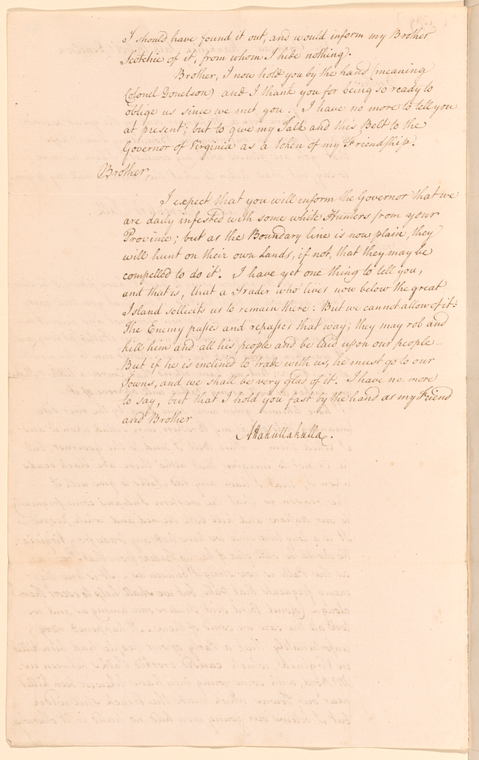 I should have found it out, and would inform my Brother
Scotchie of it, from whom I hide nothing.
Brother, I now hold you by the hand (meaning
Colonel Donelson) and I thank you for being so ready to
oblige us since we met you. I have no more to tell you
at present; but to give my Talk and this Belt to the
Governor of Virginia as a token of my Friendship.
Brother,
I expect that you will inform the Governor that we
are daily infested with some white Hunters from your
Province; but as the Boundary line is now plain, they
will hunt on their own Lands, if not, that they may be
compelled to do it. I have yet one thing to tell you,
and that is, that a Trader who lives now below the great
Island sollicits us to remain there: But we cannot allow of it.
The Enemy passes and repasses that way; they may rob and
kill him and all his people and be laid upon our people.
But if he is inclined to trade with us, he must go to our
Towns, and we shall be very glad of it. I have no more
to say, but that I hold you fast by the hand as my Friend
and Brother
Attakullakulla.